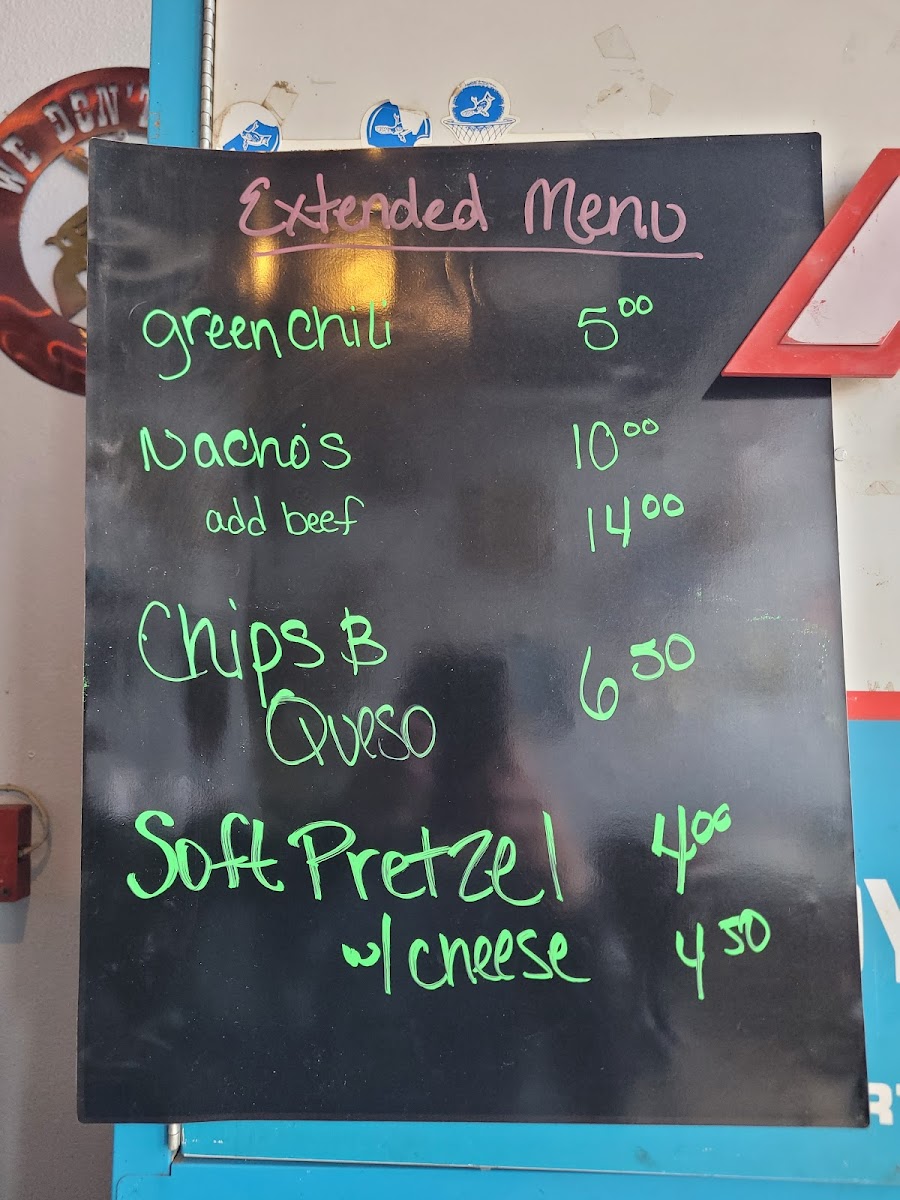 WE DON'T
Extended Menu
green chili 5.00
Nacho's 10.00
add beef 14.00
Chips &
Queso 6.50
Soft Pretzel 4.00
w/ cheese 4.50